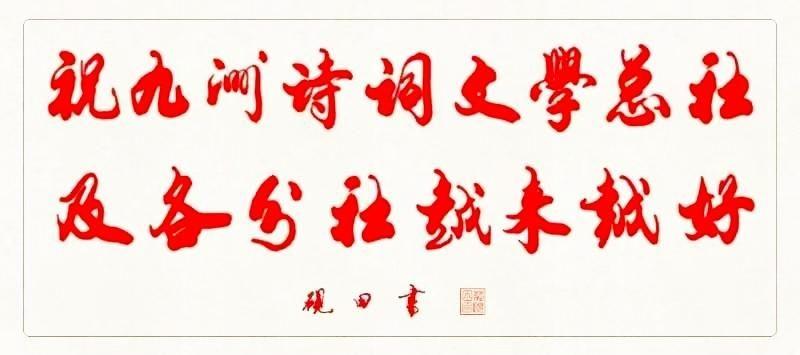 祝九洲诗词文學总社
及各分社越来越好
砚田书